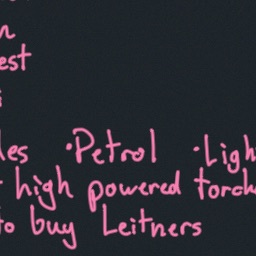 est
les •Petrol •Ligh
high powered torch
to buy Leitners